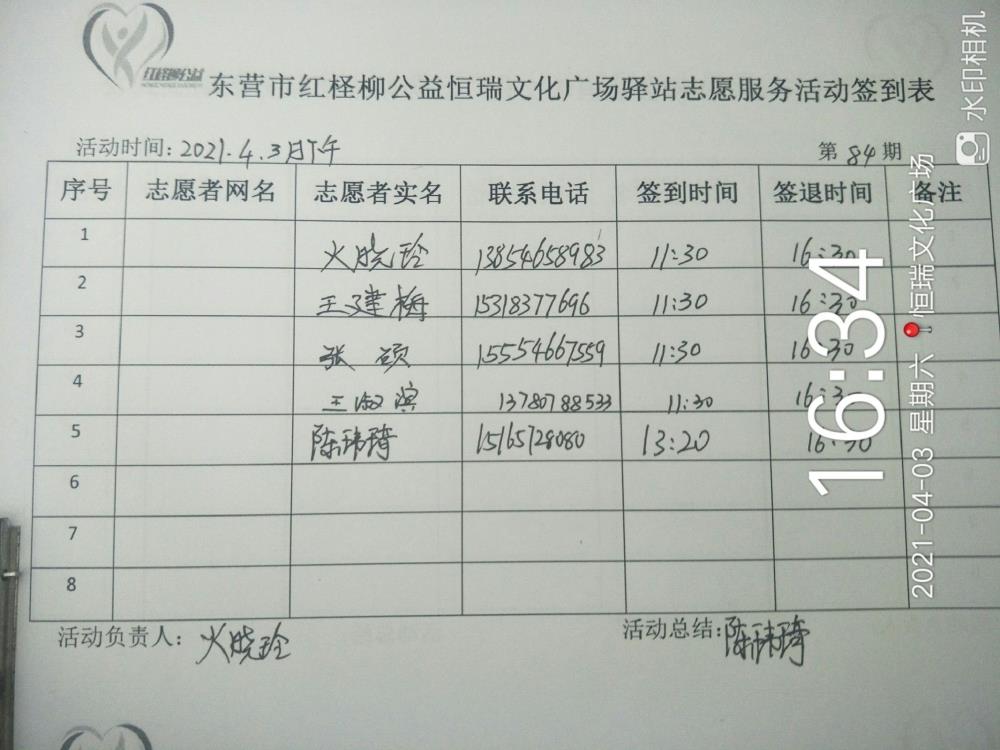 红柽柳公益
东营市红柽柳公益恒瑞文化广场驿站志愿服务活动签到表
活动时间: 2021.4.3日下午 第 84 期
序号 志愿者网名 志愿者实名 联系电话 签到时间 签退时间 备注
1 火晓玲 13854658983 11:30 16:30
2 王建梅 15318377696 11:30 16:30
3 张硕 15554667559 11:30 16:30
4 王淑滨 13780788533 11:30 16:30
5 陈玮琦 15165728080 13:20 16:30
6
7
8
活动负责人: 火晓玲 活动总结: 陈玮琦
16:34
2021-04-03 星期六 恒瑞文化广场
水印相机